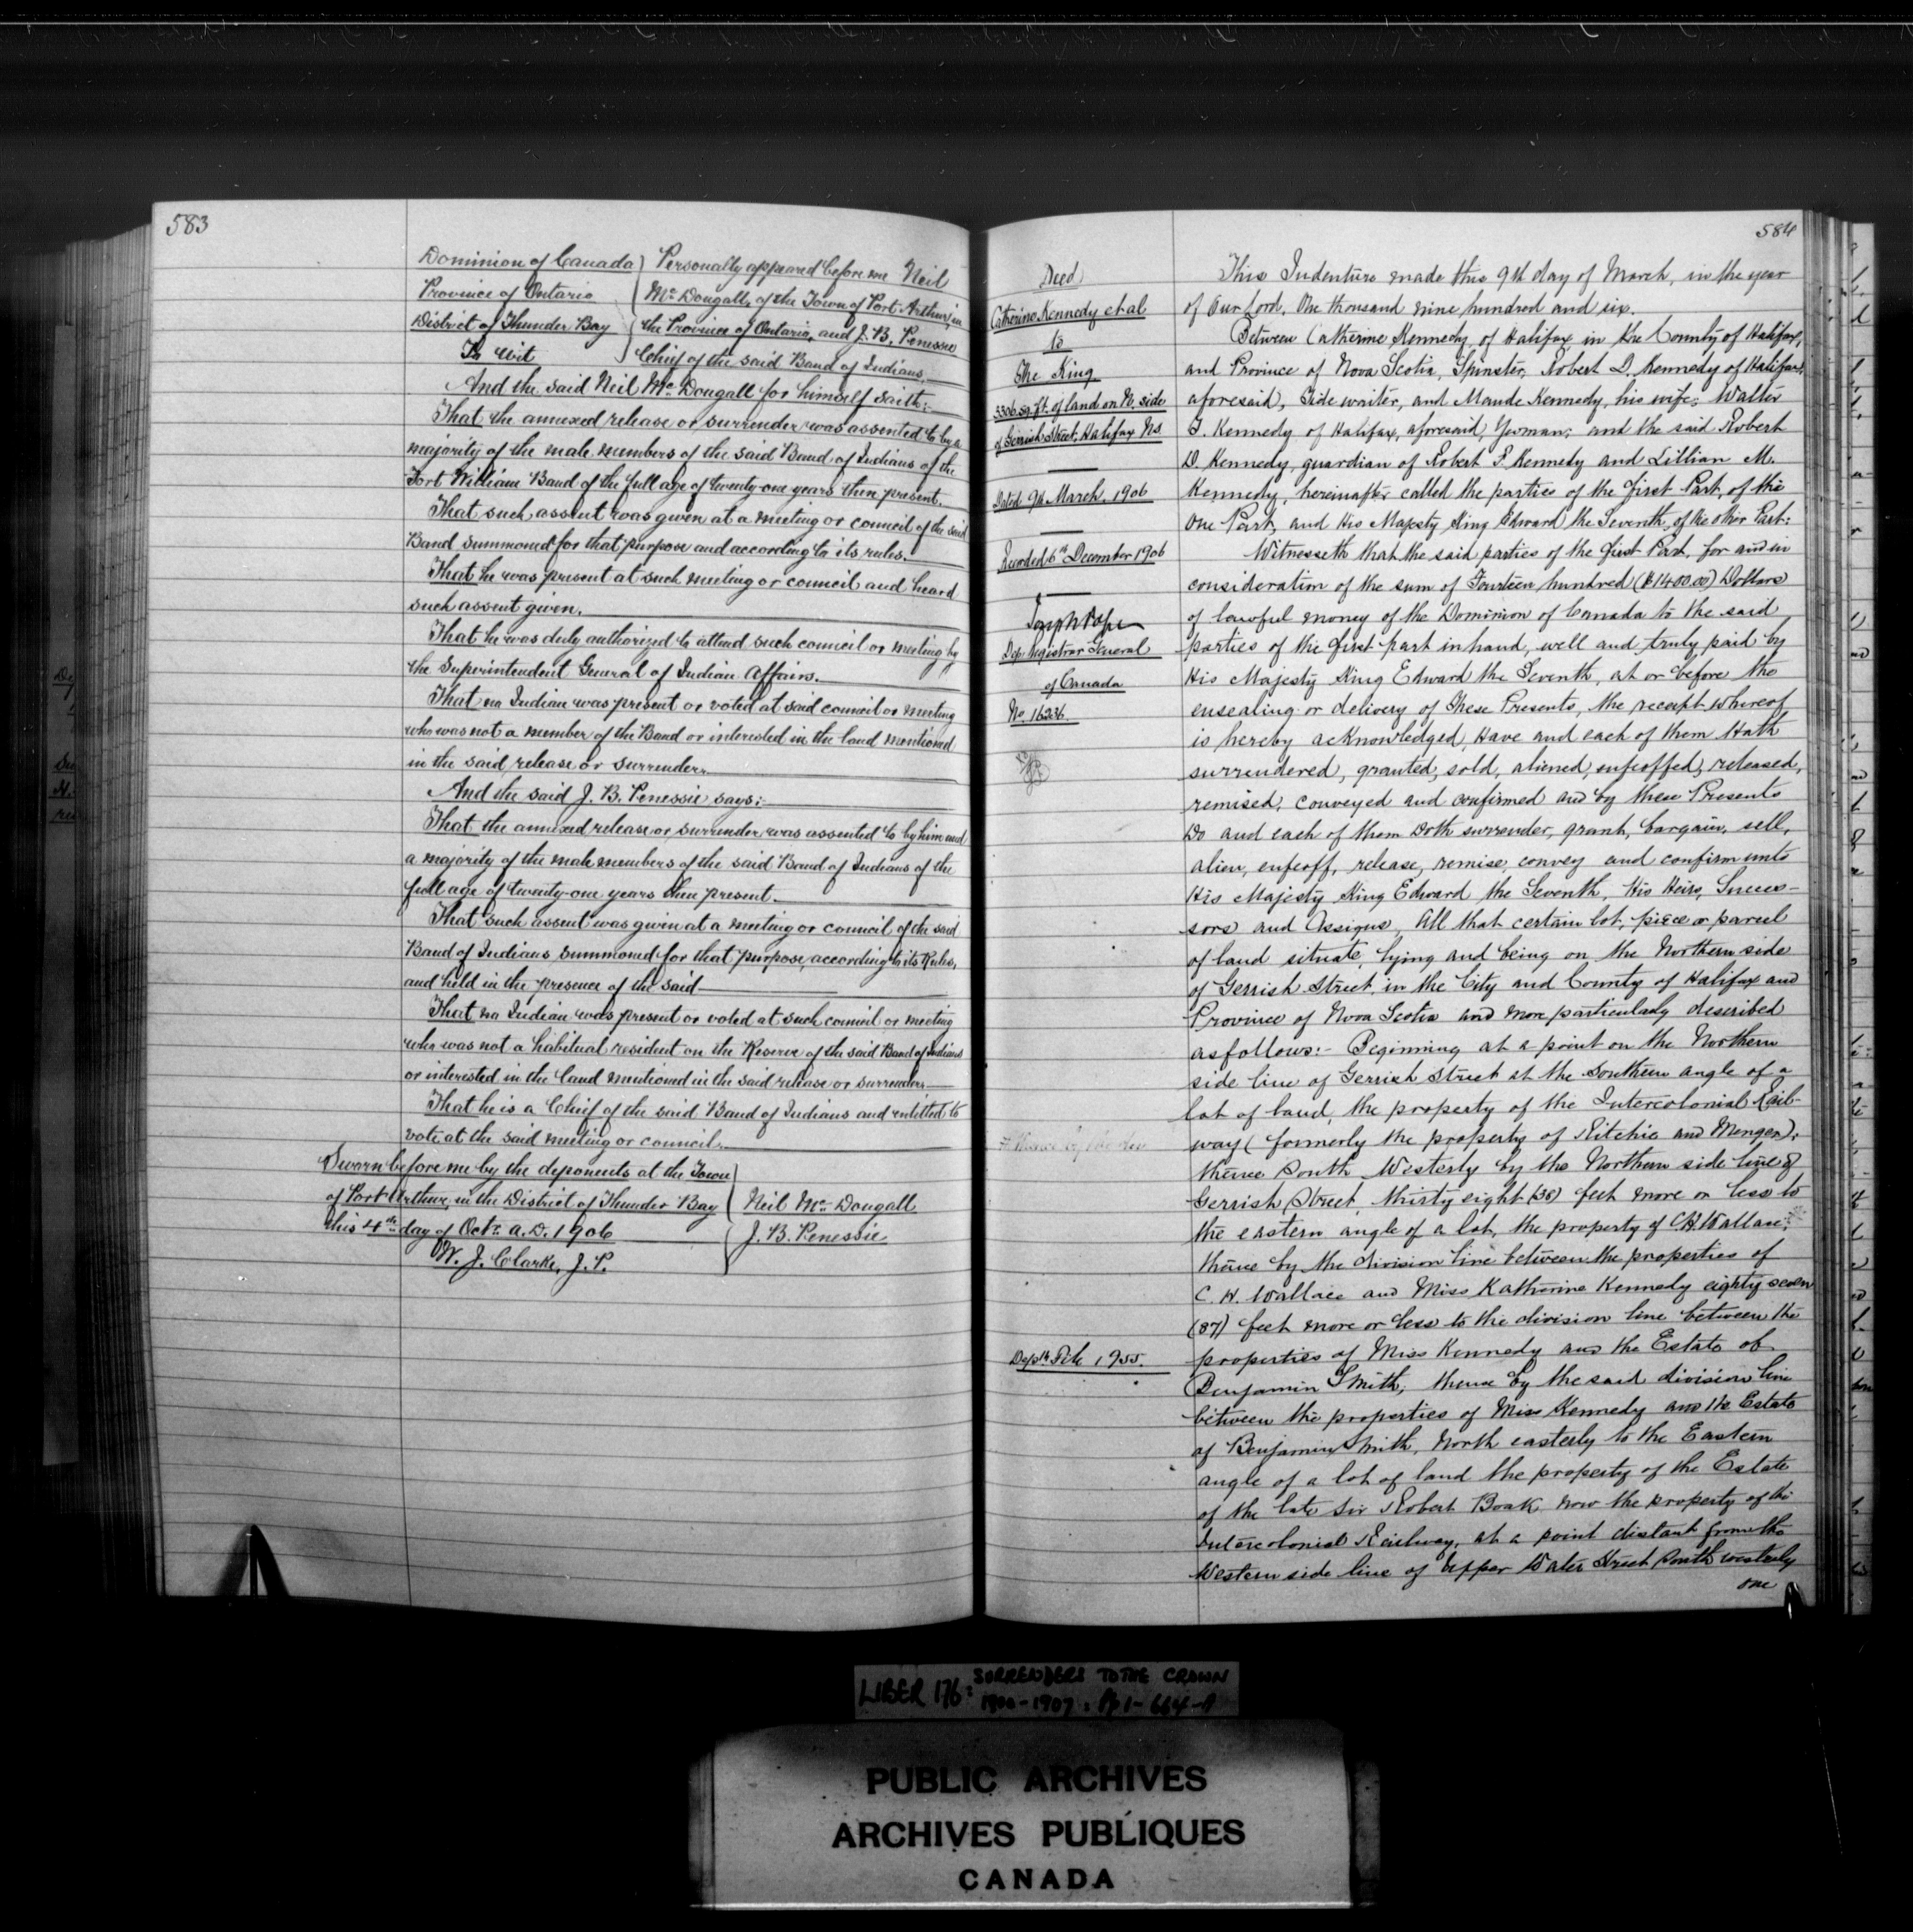 583
Dominion of Canada } Personally appeared before me Neil
Province of Ontario } McDougall, of the Town of Port Arthur, in
District of Thunder Bay } the Province of Ontario, and J. B. Penessie
To wit } Chief of the said Band of Indians.
And the said Neil McDougall for himself saith:-
That the annexed release or surrender was assented to by a
majority of the male members of the said Band of Indians of the
Fort William Band of the full age of twenty-one years then present.
That such assent was given at a meeting or council of the said
Band summoned for that purpose and according to its rules.
That he was present at such meeting or council and heard
such assent given.
That he was duly authorized to attend such council or meeting by
the Superintendent General of Indian Affairs.
That no Indian was present or voted at said council or meeting
who was not a member of the Band or interested in the land mentioned
in the said release or surrender.
And the said J. B. Penessie says:
That the annexed release or surrender was assented to by him and
a majority of the male members of the said Band of Indians of the
full age of twenty-one years then present.
That such assent was given at a meeting or council of the said
Band of Indians summoned for that purpose, according to its Rules,
and held in the presence of the said
That no Indian was present or voted at such council or meeting
who was not a habitual resident on the Reserve of the said Band of Indians
or interested in the land mentioned in the said release or surrender.
That he is a Chief of the said Band of Indians and entitled to
vote at the said meeting or council.
Sworn before me by the deponents at the Town
of Port Arthur, in the District of Thunder Bay } Neil McDougall
this 4th day of Octr. A.D. 1906 } J. B. Penessie
W. J. Clarke, J. P.
584
Deed
Catherine Kennedy et al
to
The King
3306 sq. ft. of land on N. side
of Gerrish Street, Halifax N.S
Dated 9th March, 1906
Recorded 6th December 1906
Joseph Pope
Dep. Registrar General
of Canada
No. 16236
Depth File 1955.
This Indenture made this 9th day of March, in the year
of Our Lord, One thousand nine hundred and six.
Between Catherine Kennedy, of Halifax, in the County of Halifax,
and Province of Nova Scotia, Spinster, Robert D. Kennedy of Halifax,
aforesaid, Tide waiter, and Maude Kennedy, his wife; Walter
J. Kennedy of Halifax, aforesaid, Yeoman; and the said Robert
D. Kennedy, guardian of Robert F. Kennedy and Lillian M.
Kennedy, hereinafter called the parties of the first Part, of the
One Part, and His Majesty King Edward the Seventh, of the other Part:
Witnesseth that the said parties of the first Part, for and in
consideration of the sum of Fourteen hundred ($1400.00) Dollars
of lawful money of the Dominion of Canada to the said
parties of the first part in hand, well and truly paid by
His Majesty King Edward the Seventh, at or before the
ensealing or delivery of These Presents, the receipt whereof
is hereby acknowledged, Have and each of them Hath
surrendered, granted, sold, aliened, enfeoffed, released,
remised, conveyed and confirmed and by these Presents
Do and each of them Doth surrender, grant, bargain, sell,
alien, enfeoff, release, remise, convey and confirm unto
His Majesty King Edward the Seventh, His Heirs, Succes-
sors and Assigns, All that certain lot, piece or parcel
of land situate, lying and being on the Northern side
of Gerrish Street, in the City and County of Halifax and
Province of Nova Scotia and more particularly described
as follows:- Beginning at a point on the Northern
side line of Gerrish Street at the Southern angle of a
lot of land, the property of the Intercolonial Rail-
way (formerly the property of Ritchie and Menger);
thence South Westerly by the Northern side line of
Gerrish Street, thirty eight (38) feet more or less to
the eastern angle of a lot, the property of C. H. Wallace;
thence by the division line between the properties of
C. H. Wallace and Miss Katherine Kennedy eighty seven
(87) feet more or less to the division line between the
properties of Miss Kennedy and the Estate of
Benjamin Smith; thence by the said division line
between the properties of Miss Kennedy and the Estate
of Benjamin Smith, North easterly to the Eastern
angle of a lot of land the property of the Estate
of the late Sir Robert Boak now the property of the
Intercolonial Railway, at a point distant from the
Western side line of Upper Water Street South westerly
one
LIBER 176: SURRENDERS TO THE CROWN
1900-1907: Pp 1-664-A
PUBLIC ARCHIVES
ARCHIVES PUBLIQUES
CANADA